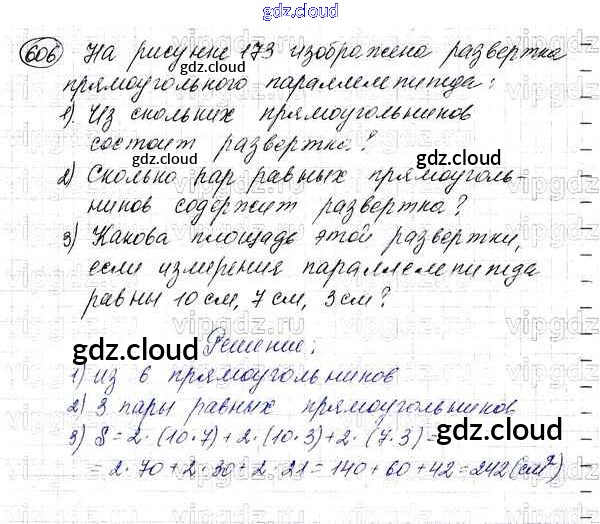 gdz.cloud
606 На рисунке 173 изображена развертка
gdz.cloud
прямоугольного параллелепипеда:
1). Из скольких прямоугольников
состоит развертка?
gdz.cloud
2) Сколько пар равных прямоуголь-
gdz.cloud
ников содержит развертка?
3) Какова площадь этой развертки,
если измерения параллелепипеда
равны 10 см, 7 см, 3 см?
gdz.cloud
Решение:
1) из 6 прямоугольников
2) 3 пары равных прямоугольников
gdz.cloud
3) S = 2·(10·7)+2·(10·3)+2·(7·3)=
= 2·70+2·30+2·21=140+60+42=242(см²)